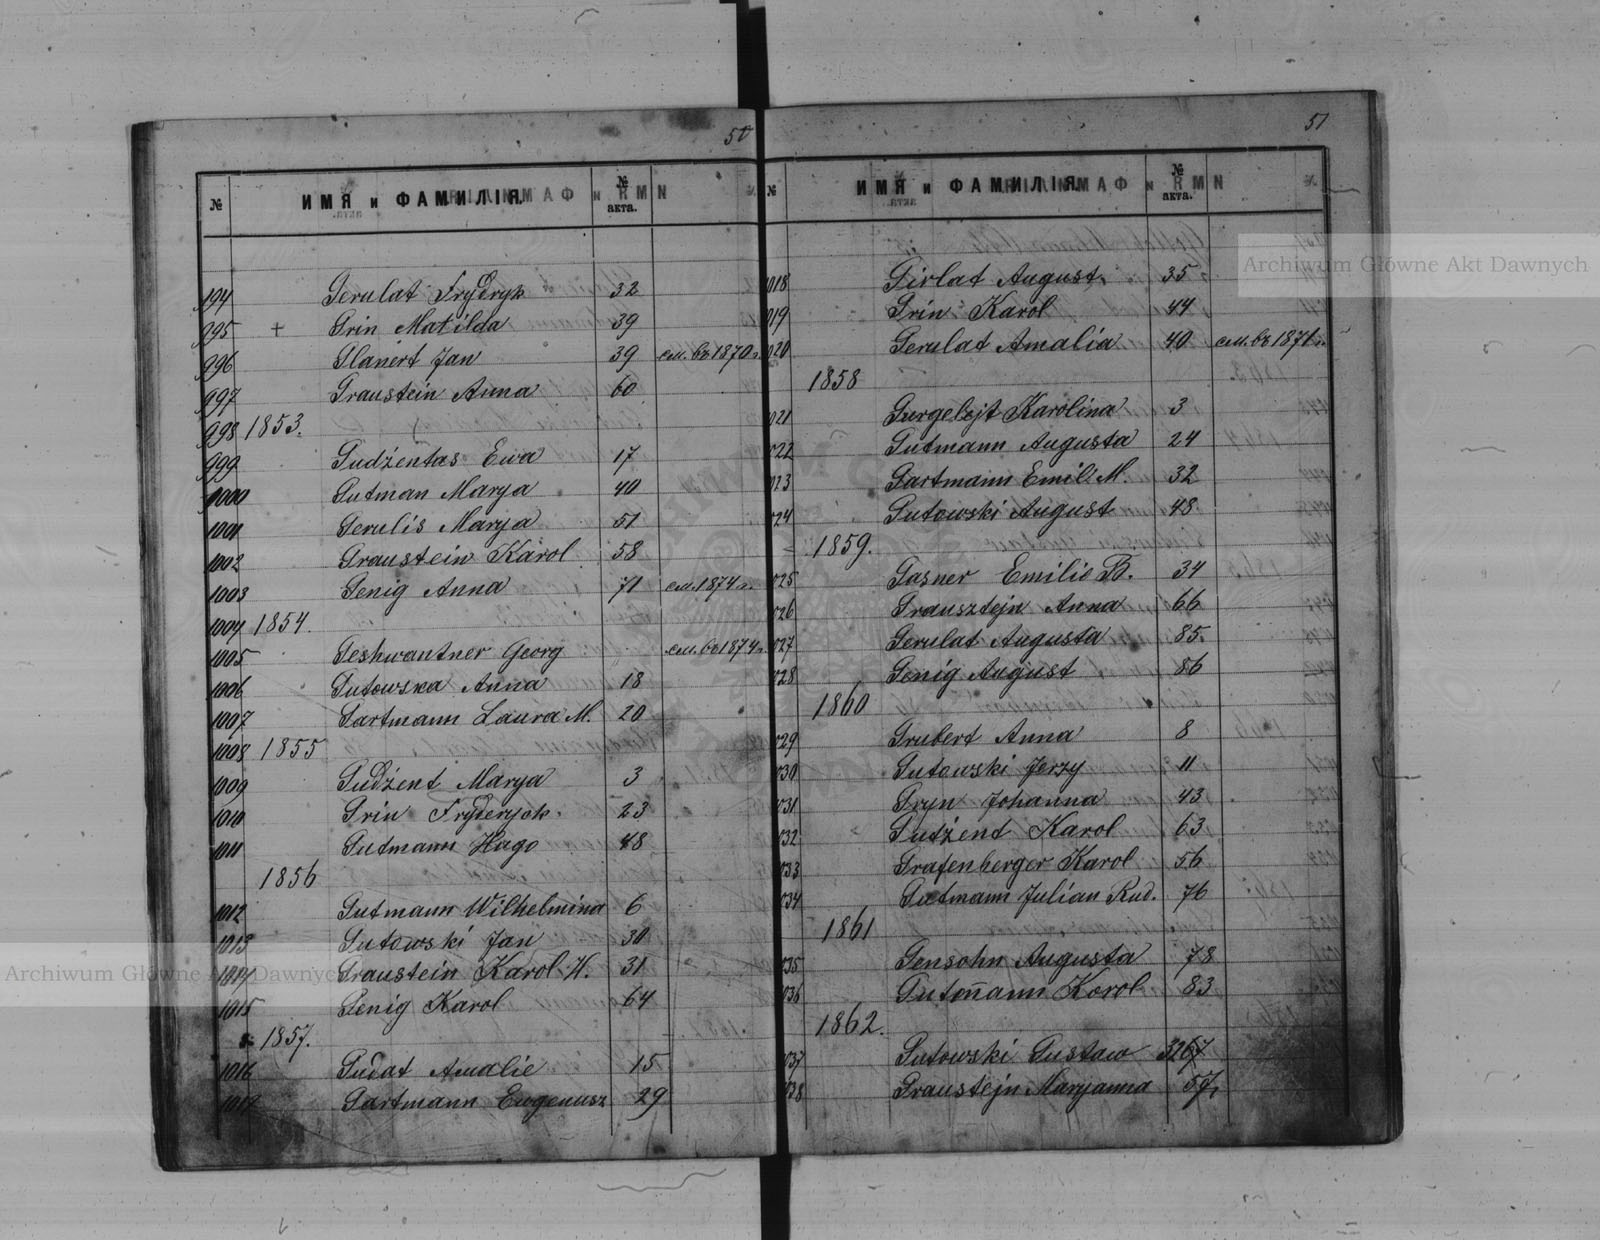 50
№ ИМЯ и ФАМИЛІЯ № акта.
994 Gerulat Fryderyk 32
995 + Grin Matilda 39
996 Glanert Jan 39 см. въ 1870 г.
997 Graustein Anna 60
998 1853.
999 Gudżentas Ewa 17
1000 Gutman Marya 40
1001 Gerulis Marya 51
1002 Graustein Karol 58
1003 Genig Anna 71 см. 1874 г.
1004 1854.
1005 Geshwantner Georg см. въ 1874 г.
1006 Gutowska Anna 18
1007 Gartmann Laura M. 20
1008 1855
1009 Gudżent Marya 3
1010 Grin Fryderyck 23
1011 Gutmann Hugo 48
1856
1012 Gutmann Wilhelmina 6
1013 Gutowski Jan 30
1014 Graustein Karol H. 31
1015 Genig Karol 64
1857.
1016 Gudat Amalie 15
1017 Gartmann Eugeniusz 29
51
№ ИМЯ и ФАМИЛІЯ № акта.
1018 Girlat August 35
019 Grin Karol 44
020 Gerulat Amalia 40 см. въ 1871 г.
1858
021 Gurgelejt Karolina 3
022 Gutmann Augusta 24
023 Gartmann Emil M. 32
024 Gutowski August 48
1859.
025 Gasner Emilie B. 34
026 Grausztejn Anna 66
027 Gerulat Augusta 85
028 Genig August 86
1860
029 Grubert Anna 8
030 Gutowski Jerzy 11
031 Gryn Johanna 43
032 Gutżent Karol 63
033 Grafenberger Karol 56
034 Gutmann Julian Rud. 76
1861
035 Gensohn Augusta 78
036 Gutmann Korol 83
1862.
037 Gutowski Gustaw
038 Graustejn Maryanna 57
Archiwum Główne Akt Dawnych
Archiwum Główne Akt Dawnych